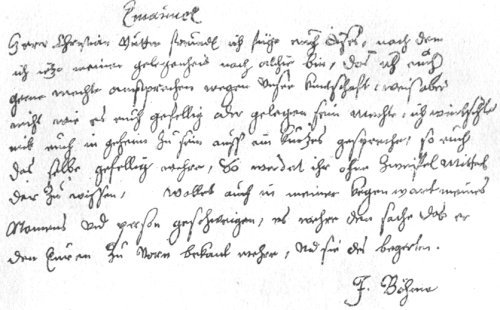 Emanuel
Herr Christian gutter freundt ich füge euch dises, nach dem
ich itzo meiner gelegenheit nach alhie bin, das ich euch
gerne mechte ansprechen wegen unser kundtschaft, weis aber
nicht wie es euch gefellig oder gelegen sein mechte, ich wintschte
mit euch in geheim zu sein auff ein kurtzes gespreche, so euch
das selbe gefellig wehre, So werdet ihr ohne zweifel Mittel
der zu wissen, wolles auch in meiner kegenwart meines
Namens und person geschweigen, es wehre den sache das er
den Euren zu vorn bekant wehre, und sie des begerten.
J. Böhme